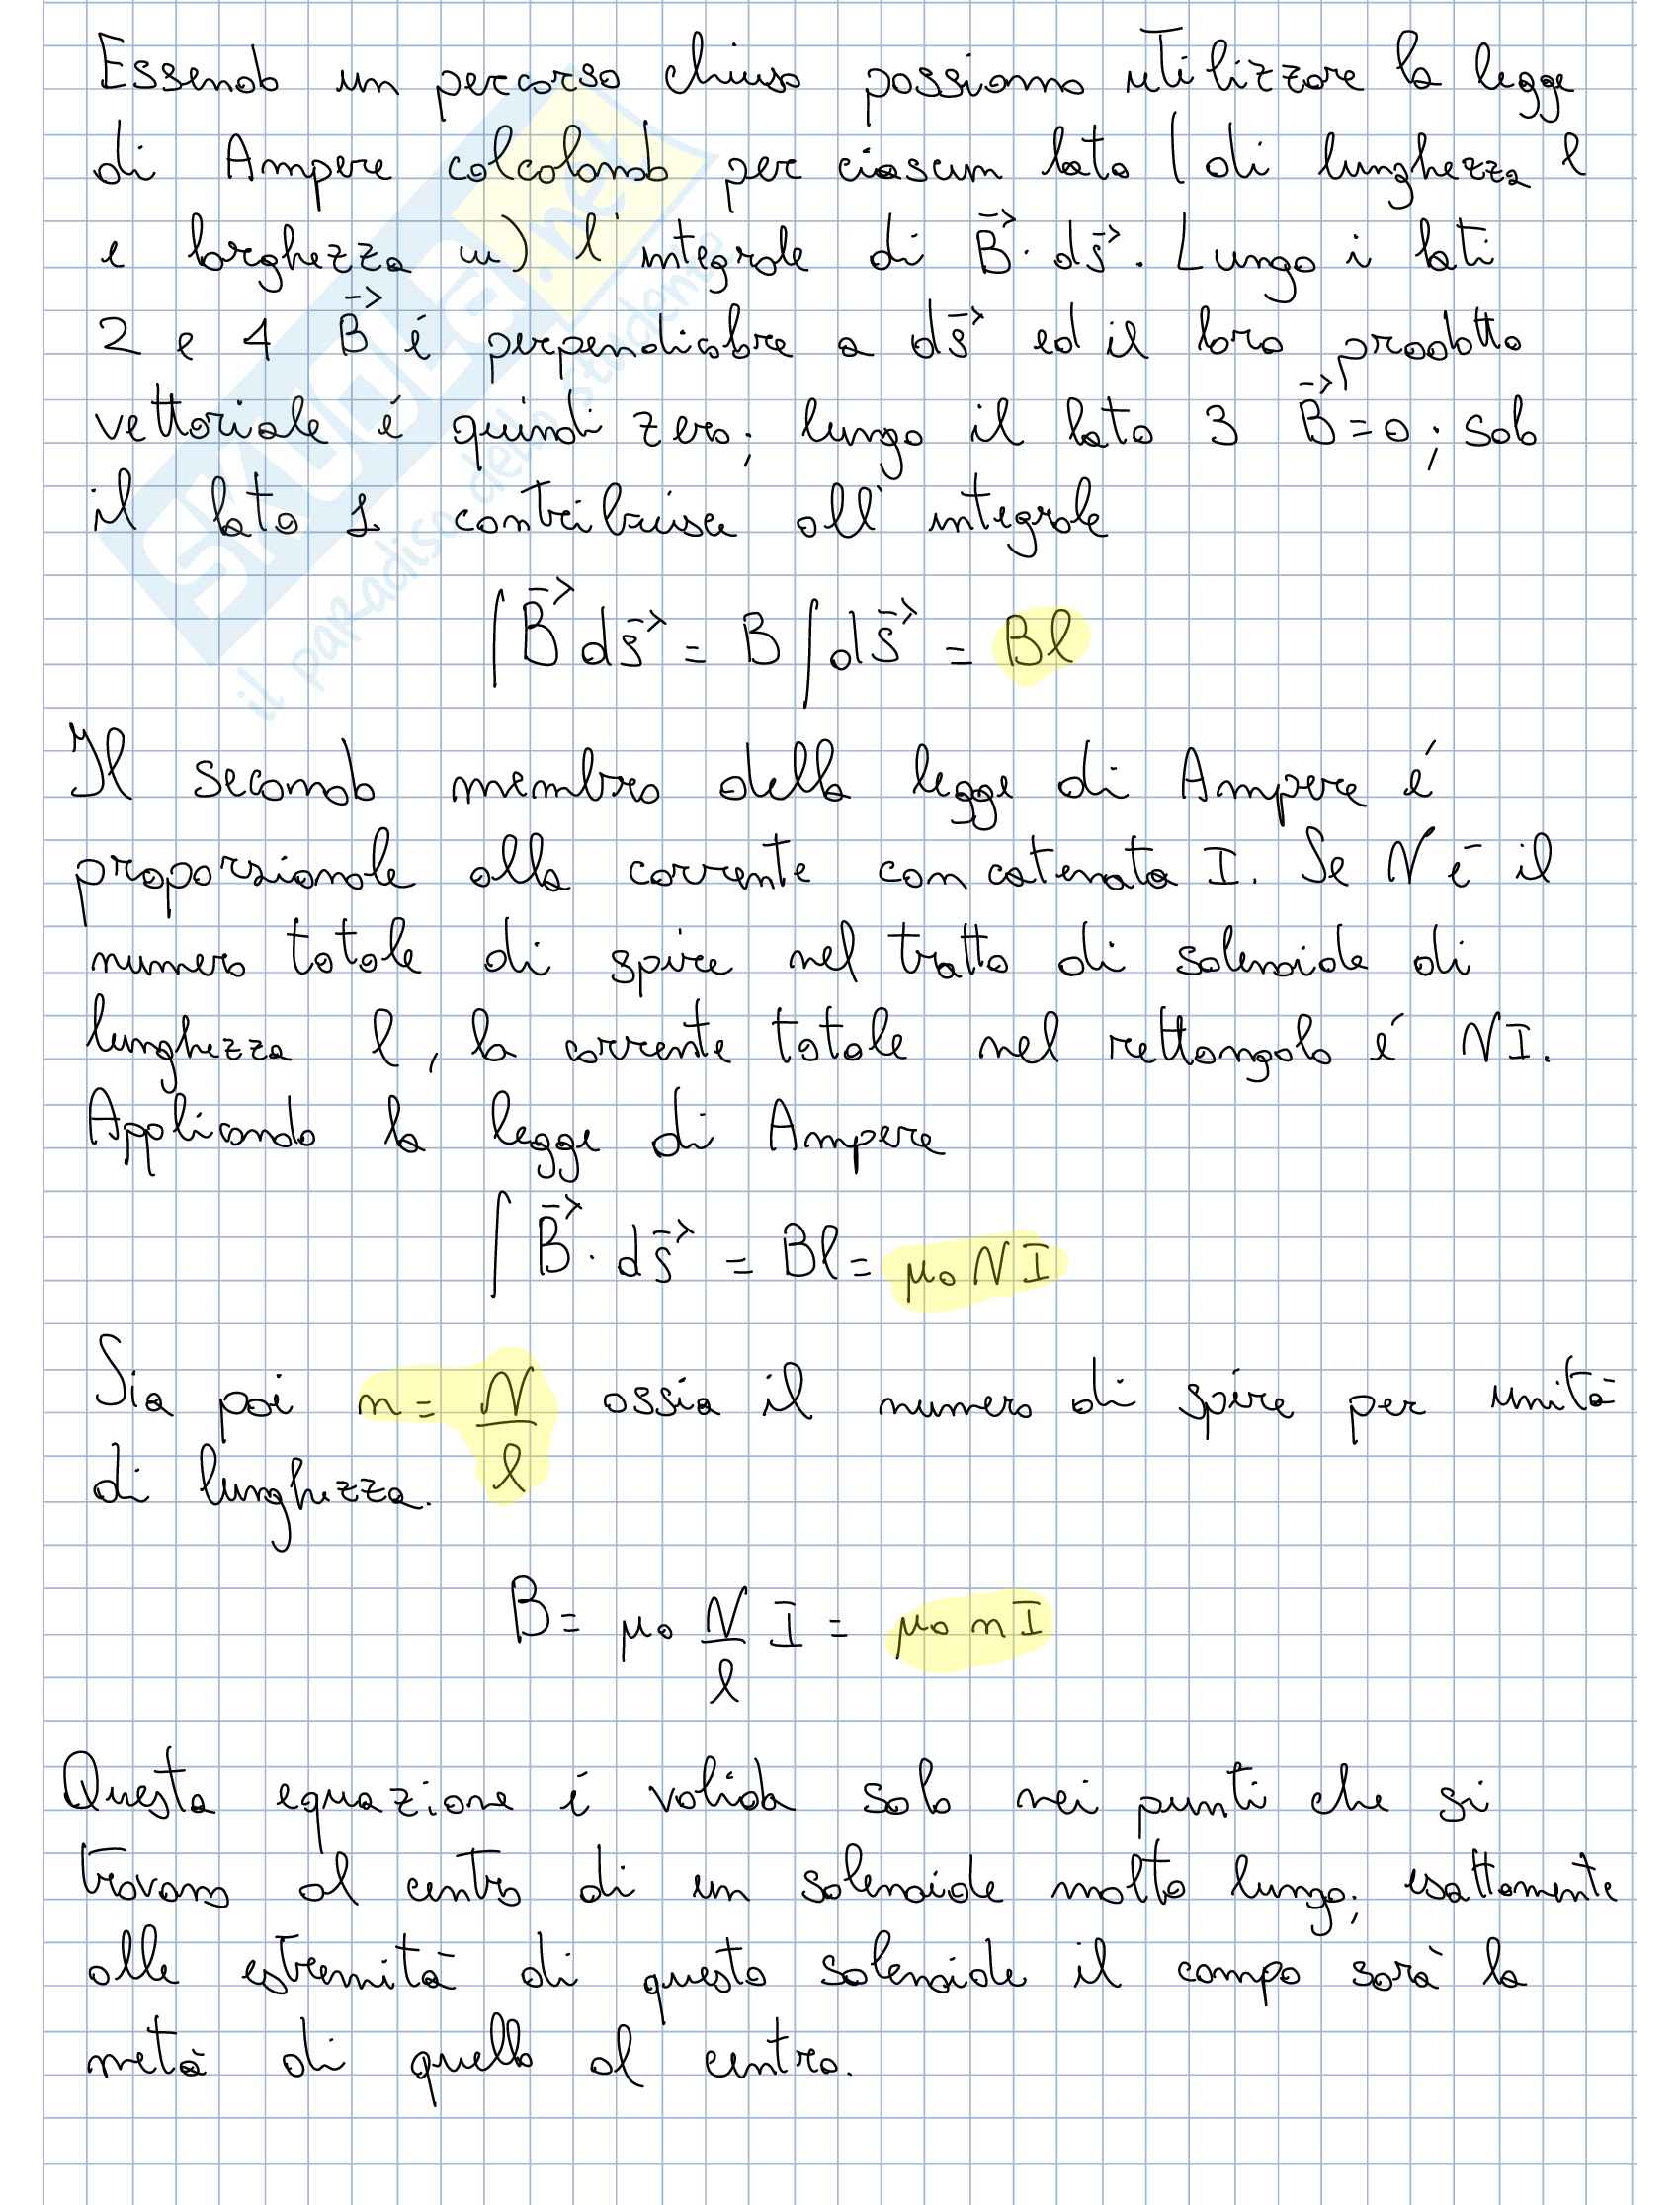 Essendo un percorso chiuso possiamo utilizzare la legge
di Ampere calcolando per ciascun lato (di lunghezza l
e larghezza w) l'integrale di B⃗ · ds⃗. Lungo i lati
2 e 4 B⃗ é perpendicolare a ds⃗ ed il loro prodotto
vettoriale é quindi zero; lungo il lato 3 B⃗=0; solo
il lato 1 contribuisce all'integrale
∫B⃗ ds⃗ = B∫ds⃗ = Bl
Il secondo membro della legge di Ampere é
proporzionale alla corrente concatenata I. Se N é il
numero totale di spire nel tratto di solenoide di
lunghezza l, la corrente totale nel rettangolo é NI.
Applicando la legge di Ampere
∫B⃗ · ds⃗ = Bl = μ₀NI
Sia poi n = N/l ossia il numero di spire per unità
di lunghezza.
B = μ₀ N/l I = μ₀ n I
Questa equazione é valida solo nei punti che si
trovano al centro di un solenoide molto lungo; esattamente
alle estremità di questo solenoide il campo sarà la
metà di quello al centro.
SKUOLA.net
il paradiso dello studente